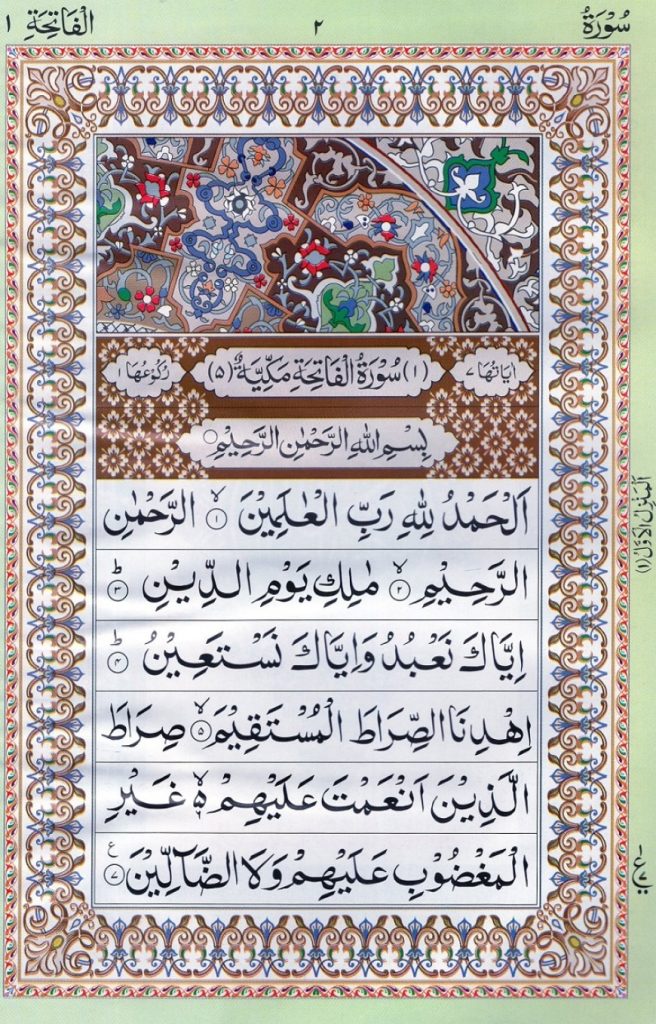 سُوْرَةُ ٢ الْفَاتِحَةِ ١
اٰيَاتُهَا ٧ (١) سُوْرَةُ الْفَاتِحَةِ مَكِّيَّةٌ (٥) رُكُوْعُهَا ١
بِسْمِ اللّٰهِ الرَّحْمٰنِ الرَّحِيْمِ
اَلْحَمْدُ لِلّٰهِ رَبِّ الْعٰلَمِيْنَ ۙ‏ ﴿١﴾ الرَّحْمٰنِ
الرَّحِيْمِ ۙ‏ ﴿٢﴾ مٰلِكِ يَوْمِ الدِّيْنِ ؕ‏ ﴿٣﴾
اِيَّاكَ نَعْبُدُ وَاِيَّاكَ نَسْتَعِيْنُ ؕ‏ ﴿٤﴾
اِهْدِنَا الصِّرَاطَ الْمُسْتَقِيْمَ ۙ‏ ﴿٥﴾ صِرَاطَ
الَّذِيْنَ اَنْعَمْتَ عَلَيْهِمْ ۙ۬ غَيْرِ
الْمَغْضُوْبِ عَلَيْهِمْ وَلَا الضَّآلِّيْنَ ﴿٧﴾ ع
اَلْمَنْزِلُ الْاَوَّلُ (١)